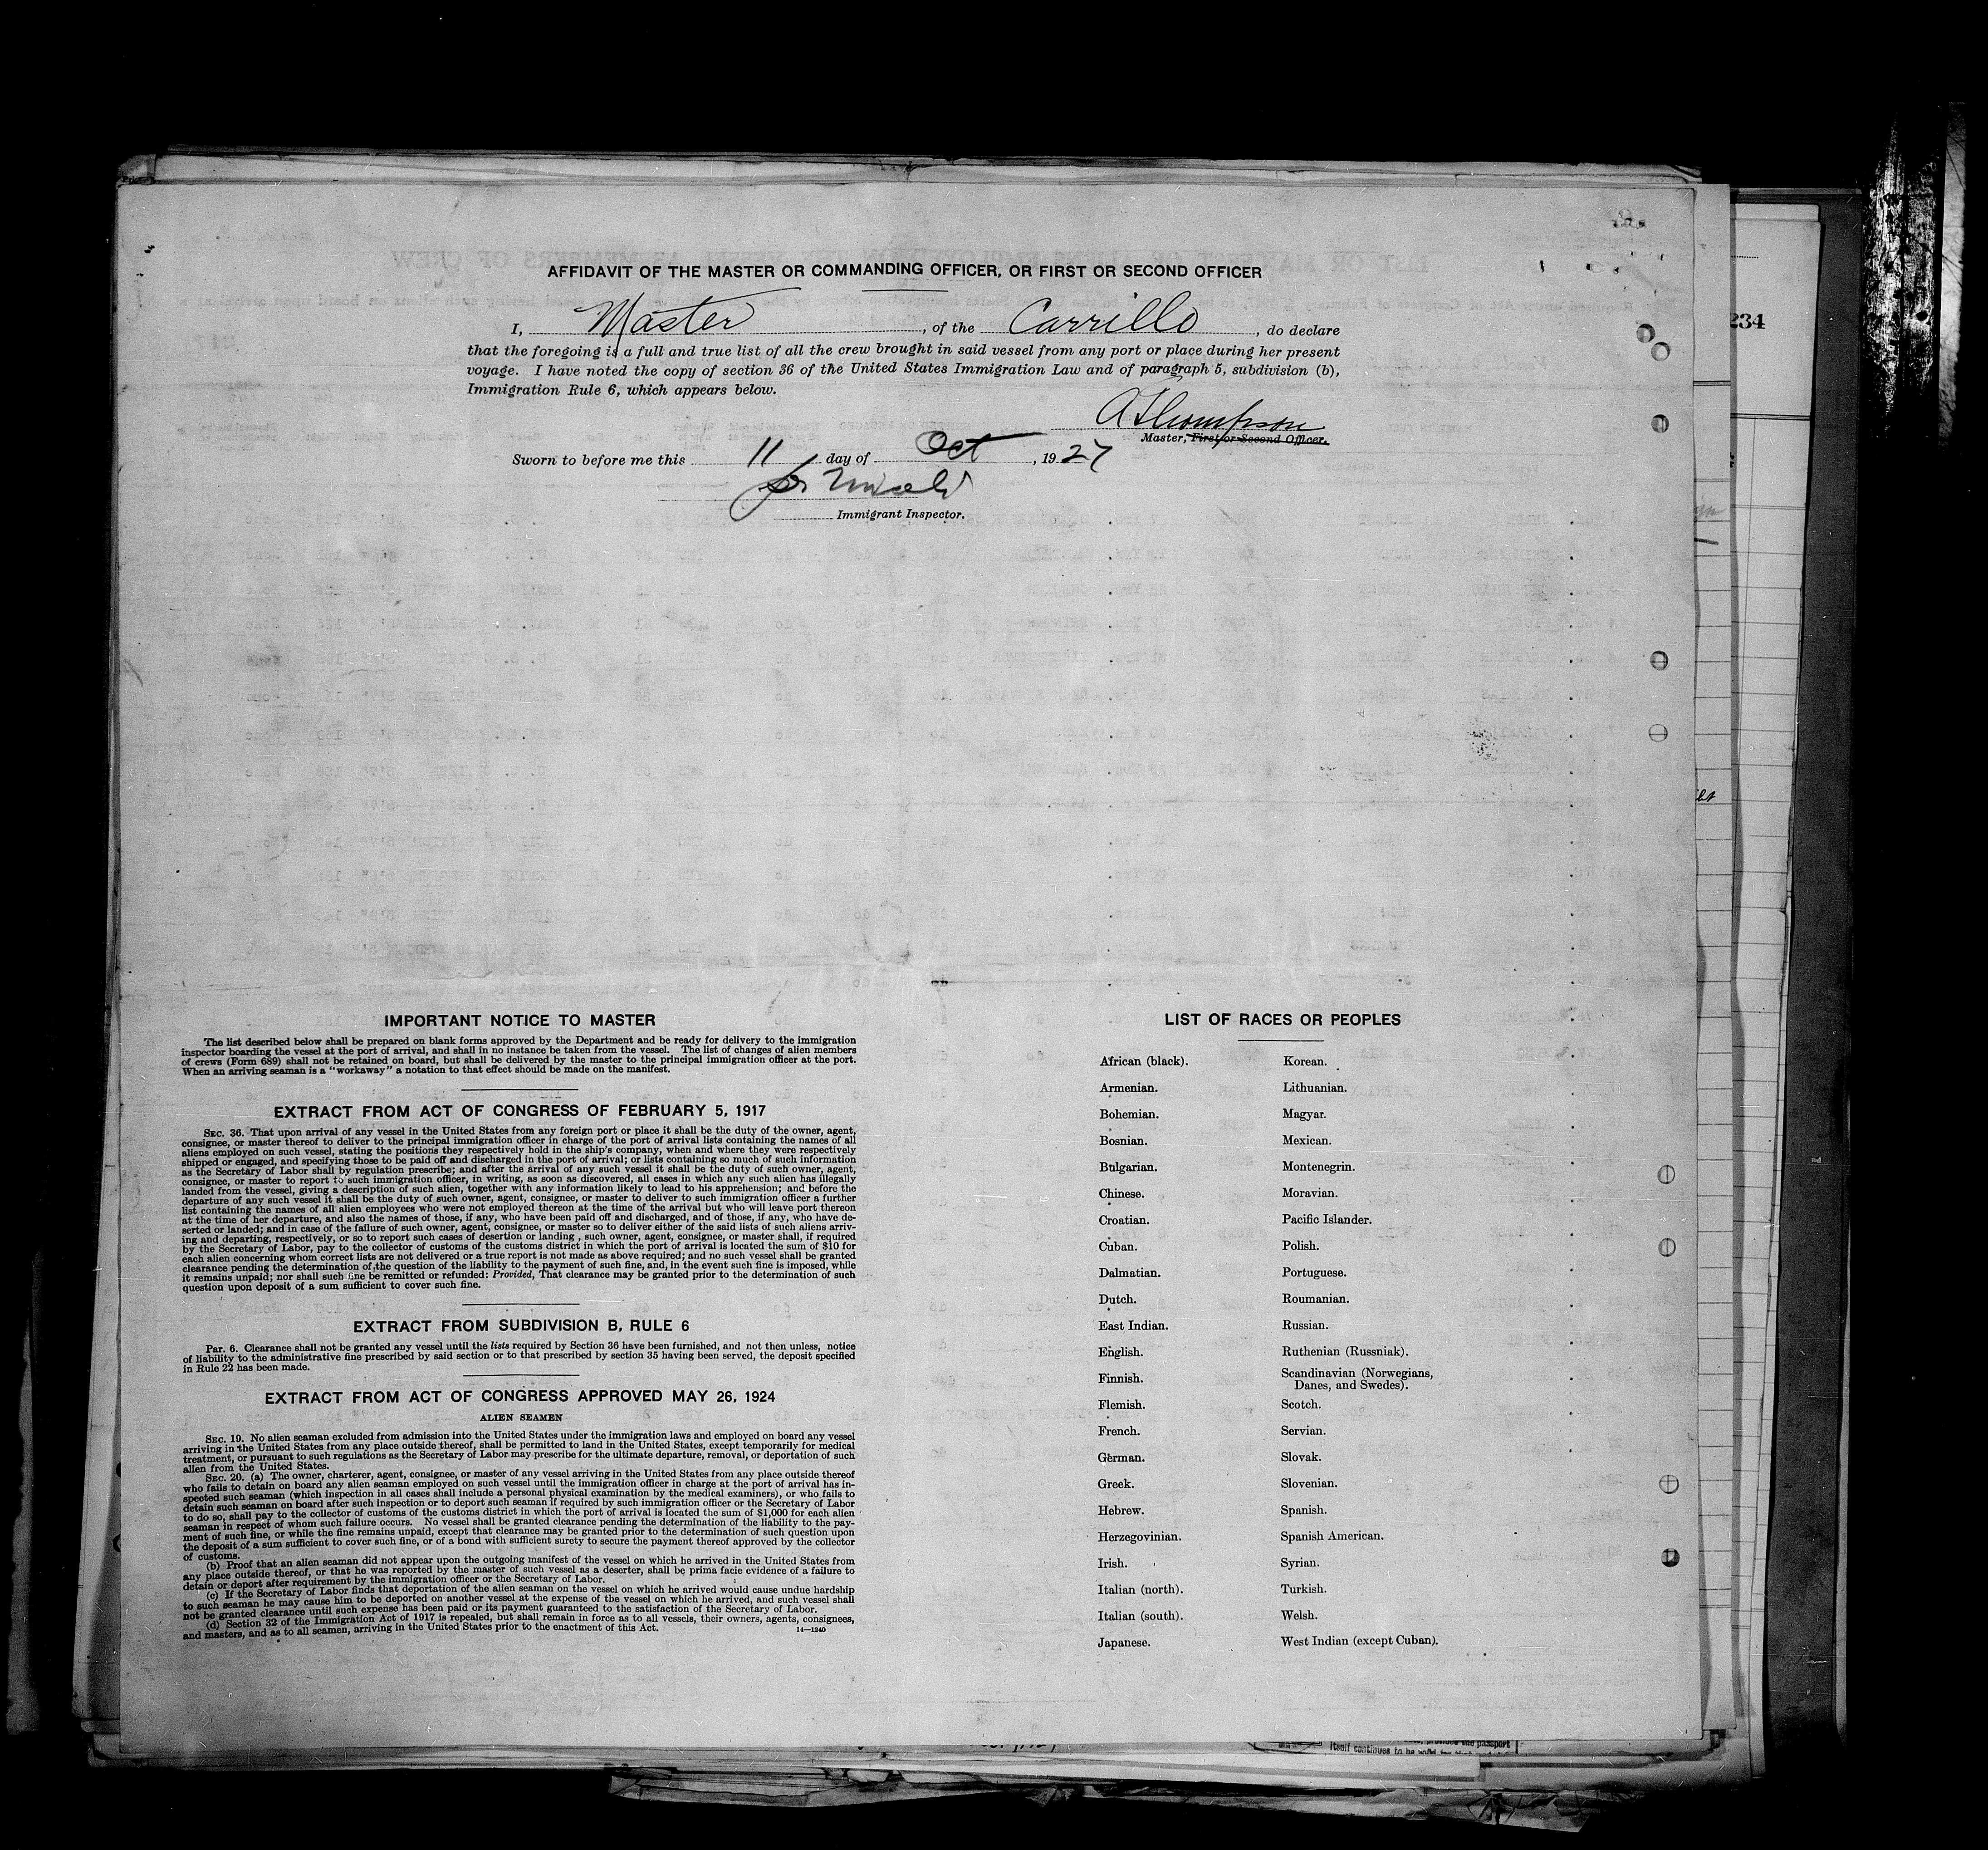 AFFIDAVIT OF THE MASTER OR COMMANDING OFFICER, OR FIRST OR SECOND OFFICER
I, Master, of the Carrillo, do declare
that the foregoing is a full and true list of all the crew brought in said vessel from any port or place during her present
voyage. I have noted the copy of section 36 of the United States Immigration Law and of paragraph 5, subdivision (b),
Immigration Rule 6, which appears below.
A Thompson
Master, First or Second Officer.
Sworn to before me this 11 day of Oct, 1927
Immigrant Inspector.
234
IMPORTANT NOTICE TO MASTER
The list described below shall be prepared on blank forms approved by the Department and be ready for delivery to the immigration
inspector boarding the vessel at the port of arrival, and shall in no instance be taken from the vessel. The list of changes of alien members
of crews (Form 689) shall not be retained on board, but shall be delivered by the master to the principal immigration officer at the port.
When an arriving seaman is a "workaway" a notation to that effect should be made on the manifest.
EXTRACT FROM ACT OF CONGRESS OF FEBRUARY 5, 1917
SEC. 36. That upon arrival of any vessel in the United States from any foreign port or place it shall be the duty of the owner, agent,
consignee, or master thereof to deliver to the principal immigration officer in charge of the port of arrival lists containing the names of all
aliens employed on such vessel, stating the positions they respectively hold in the ship's company, when and where they were respectively
shipped or engaged, and specifying those to be paid off and discharged in the port of arrival; or lists containing so much of such information
as the Secretary of Labor shall by regulation prescribe; and after the arrival of any such vessel it shall be the duty of such owner, agent,
consignee, or master to report to such immigration officer, in writing, as soon as discovered, all cases in which any such alien has illegally
landed from the vessel, giving a description of such alien, together with any information likely to lead to his apprehension; and before the
departure of any such vessel it shall be the duty of such owner, agent, consignee, or master to deliver to such immigration officer a further
list containing the names of all alien employees who were not employed thereon at the time of the arrival but who will leave port thereon
at the time of her departure, and also the names of those, if any, who have been paid off and discharged, and of those, if any, who have de-
serted or landed; and in case of the failure of such owner, agent, consignee, or master so to deliver either of the said lists of such aliens arriv-
ing and departing, respectively, or so to report such cases of desertion or landing, such owner, agent, consignee, or master shall, if required
by the Secretary of Labor, pay to the collector of customs of the customs district in which the port of arrival is located the sum of $10 for
each alien concerning whom correct lists are not delivered or a true report is not made as above required; and no such vessel shall be granted
clearance pending the determination of the question of the liability to the payment of such fine, and, in the event such fine is imposed, while
it remains unpaid; nor shall such fine be remitted or refunded: Provided, That clearance may be granted prior to the determination of such
question upon deposit of a sum sufficient to cover such fine.
EXTRACT FROM SUBDIVISION B, RULE 6
Par. 6. Clearance shall not be granted any vessel until the lists required by Section 36 have been furnished, and not then unless, notice
of liability to the administrative fine prescribed by said section or to that prescribed by section 35 having been served, the deposit specified
in Rule 22 has been made.
EXTRACT FROM ACT OF CONGRESS APPROVED MAY 26, 1924
ALIEN SEAMEN
SEC. 19. No alien seaman excluded from admission into the United States under the immigration laws and employed on board any vessel
arriving in the United States from any place outside thereof, shall be permitted to land in the United States, except temporarily for medical
treatment, or pursuant to such regulations as the Secretary of Labor may prescribe for the ultimate departure, removal, or deportation of such
alien from the United States.
SEC. 20. (a) The owner, charterer, agent, consignee, or master of any vessel arriving in the United States from any place outside thereof
who fails to detain on board any alien seaman employed on such vessel until the immigration officer in charge at the port of arrival has in-
spected such seaman (which inspection in all cases shall include a personal physical examination by the medical examiners), or who fails to
detain such seaman on board after such inspection or to deport such seaman if required by such immigration officer or the Secretary of Labor
to do so, shall pay to the collector of customs of the customs district in which the port of arrival is located the sum of $1,000 for each alien
seaman in respect of whom such failure occurs. No vessel shall be granted clearance pending the determination of the liability to the pay-
ment of such fine, or while the fine remains unpaid, except that clearance may be granted prior to the determination of such question upon
the deposit of a sum sufficient to cover such fine, or of a bond with sufficient surety to secure the payment thereof approved by the collector
of customs.
(b) Proof that an alien seaman did not appear upon the outgoing manifest of the vessel on which he arrived in the United States from
any place outside thereof, or that he was reported by the master of such vessel as a deserter, shall be prima facie evidence of a failure to
detain or deport after requirement by the immigration officer or the Secretary of Labor.
(c) If the Secretary of Labor finds that deportation of the alien seaman on the vessel on which he arrived would cause undue hardship
to such seaman he may cause him to be deported on another vessel at the expense of the vessel on which he arrived, and such vessel shall
not be granted clearance until such expense has been paid or its payment guaranteed to the satisfaction of the Secretary of Labor.
(d) Section 32 of the Immigration Act of 1917 is repealed, but shall remain in force as to all vessels, their owners, agents, consignees,
and masters, and as to all seamen, arriving in the United States prior to the enactment of this Act.
14—1240
LIST OF RACES OR PEOPLES
African (black).
Armenian.
Bohemian.
Bosnian.
Bulgarian.
Chinese.
Croatian.
Cuban.
Dalmatian.
Dutch.
East Indian.
English.
Finnish.
Flemish.
French.
German.
Greek.
Hebrew.
Herzegovinian.
Irish.
Italian (north).
Italian (south).
Japanese.
Korean.
Lithuanian.
Magyar.
Mexican.
Montenegrin.
Moravian.
Pacific Islander.
Polish.
Portuguese.
Roumanian.
Russian.
Ruthenian (Russniak).
Scandinavian (Norwegians,
Danes, and Swedes).
Scotch.
Servian.
Slovak.
Slovenian.
Spanish.
Spanish American.
Syrian.
Turkish.
Welsh.
West Indian (except Cuban).